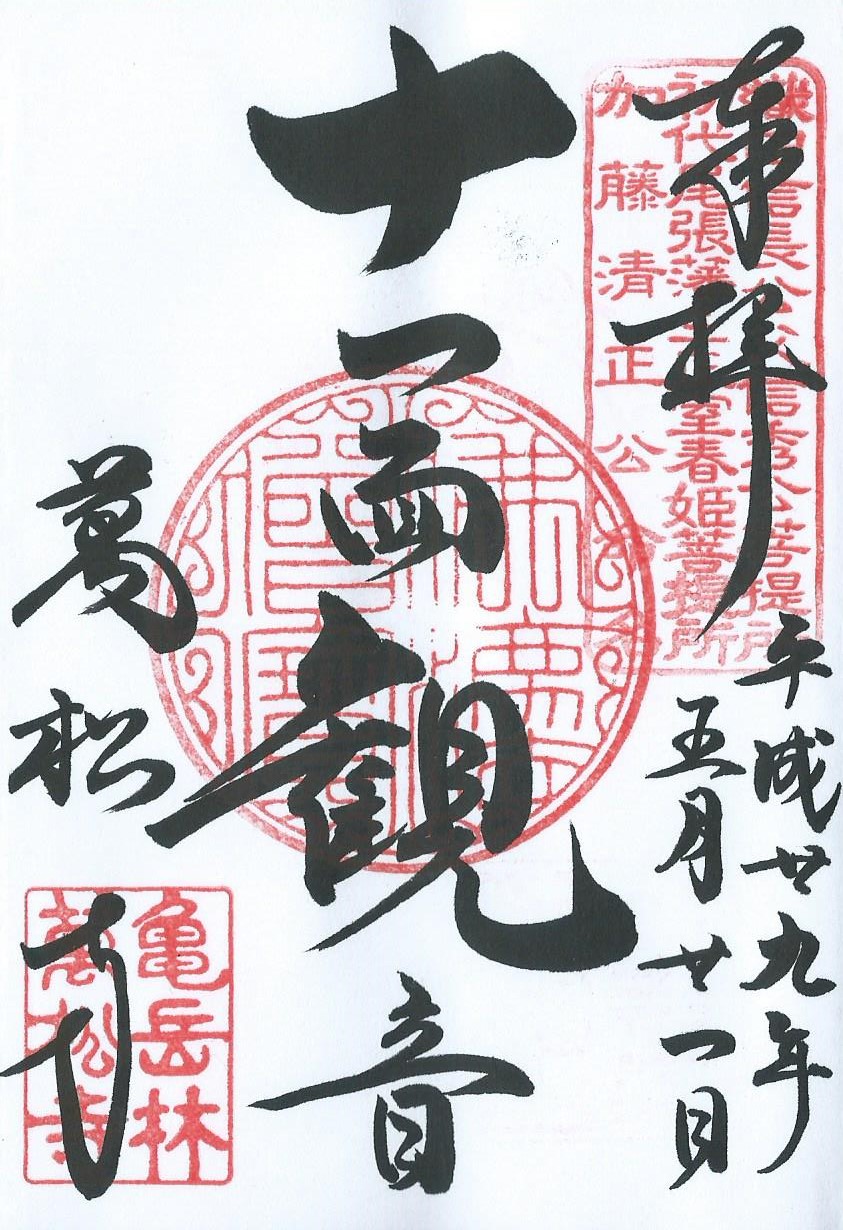 奉拝
平成廿九年
五月廿一日
織田信長公父信秀公菩提所
初代尾張藩主正室春姫菩提所
加藤清正公
十一面観音
萬松寺
亀岳林
萬松寺